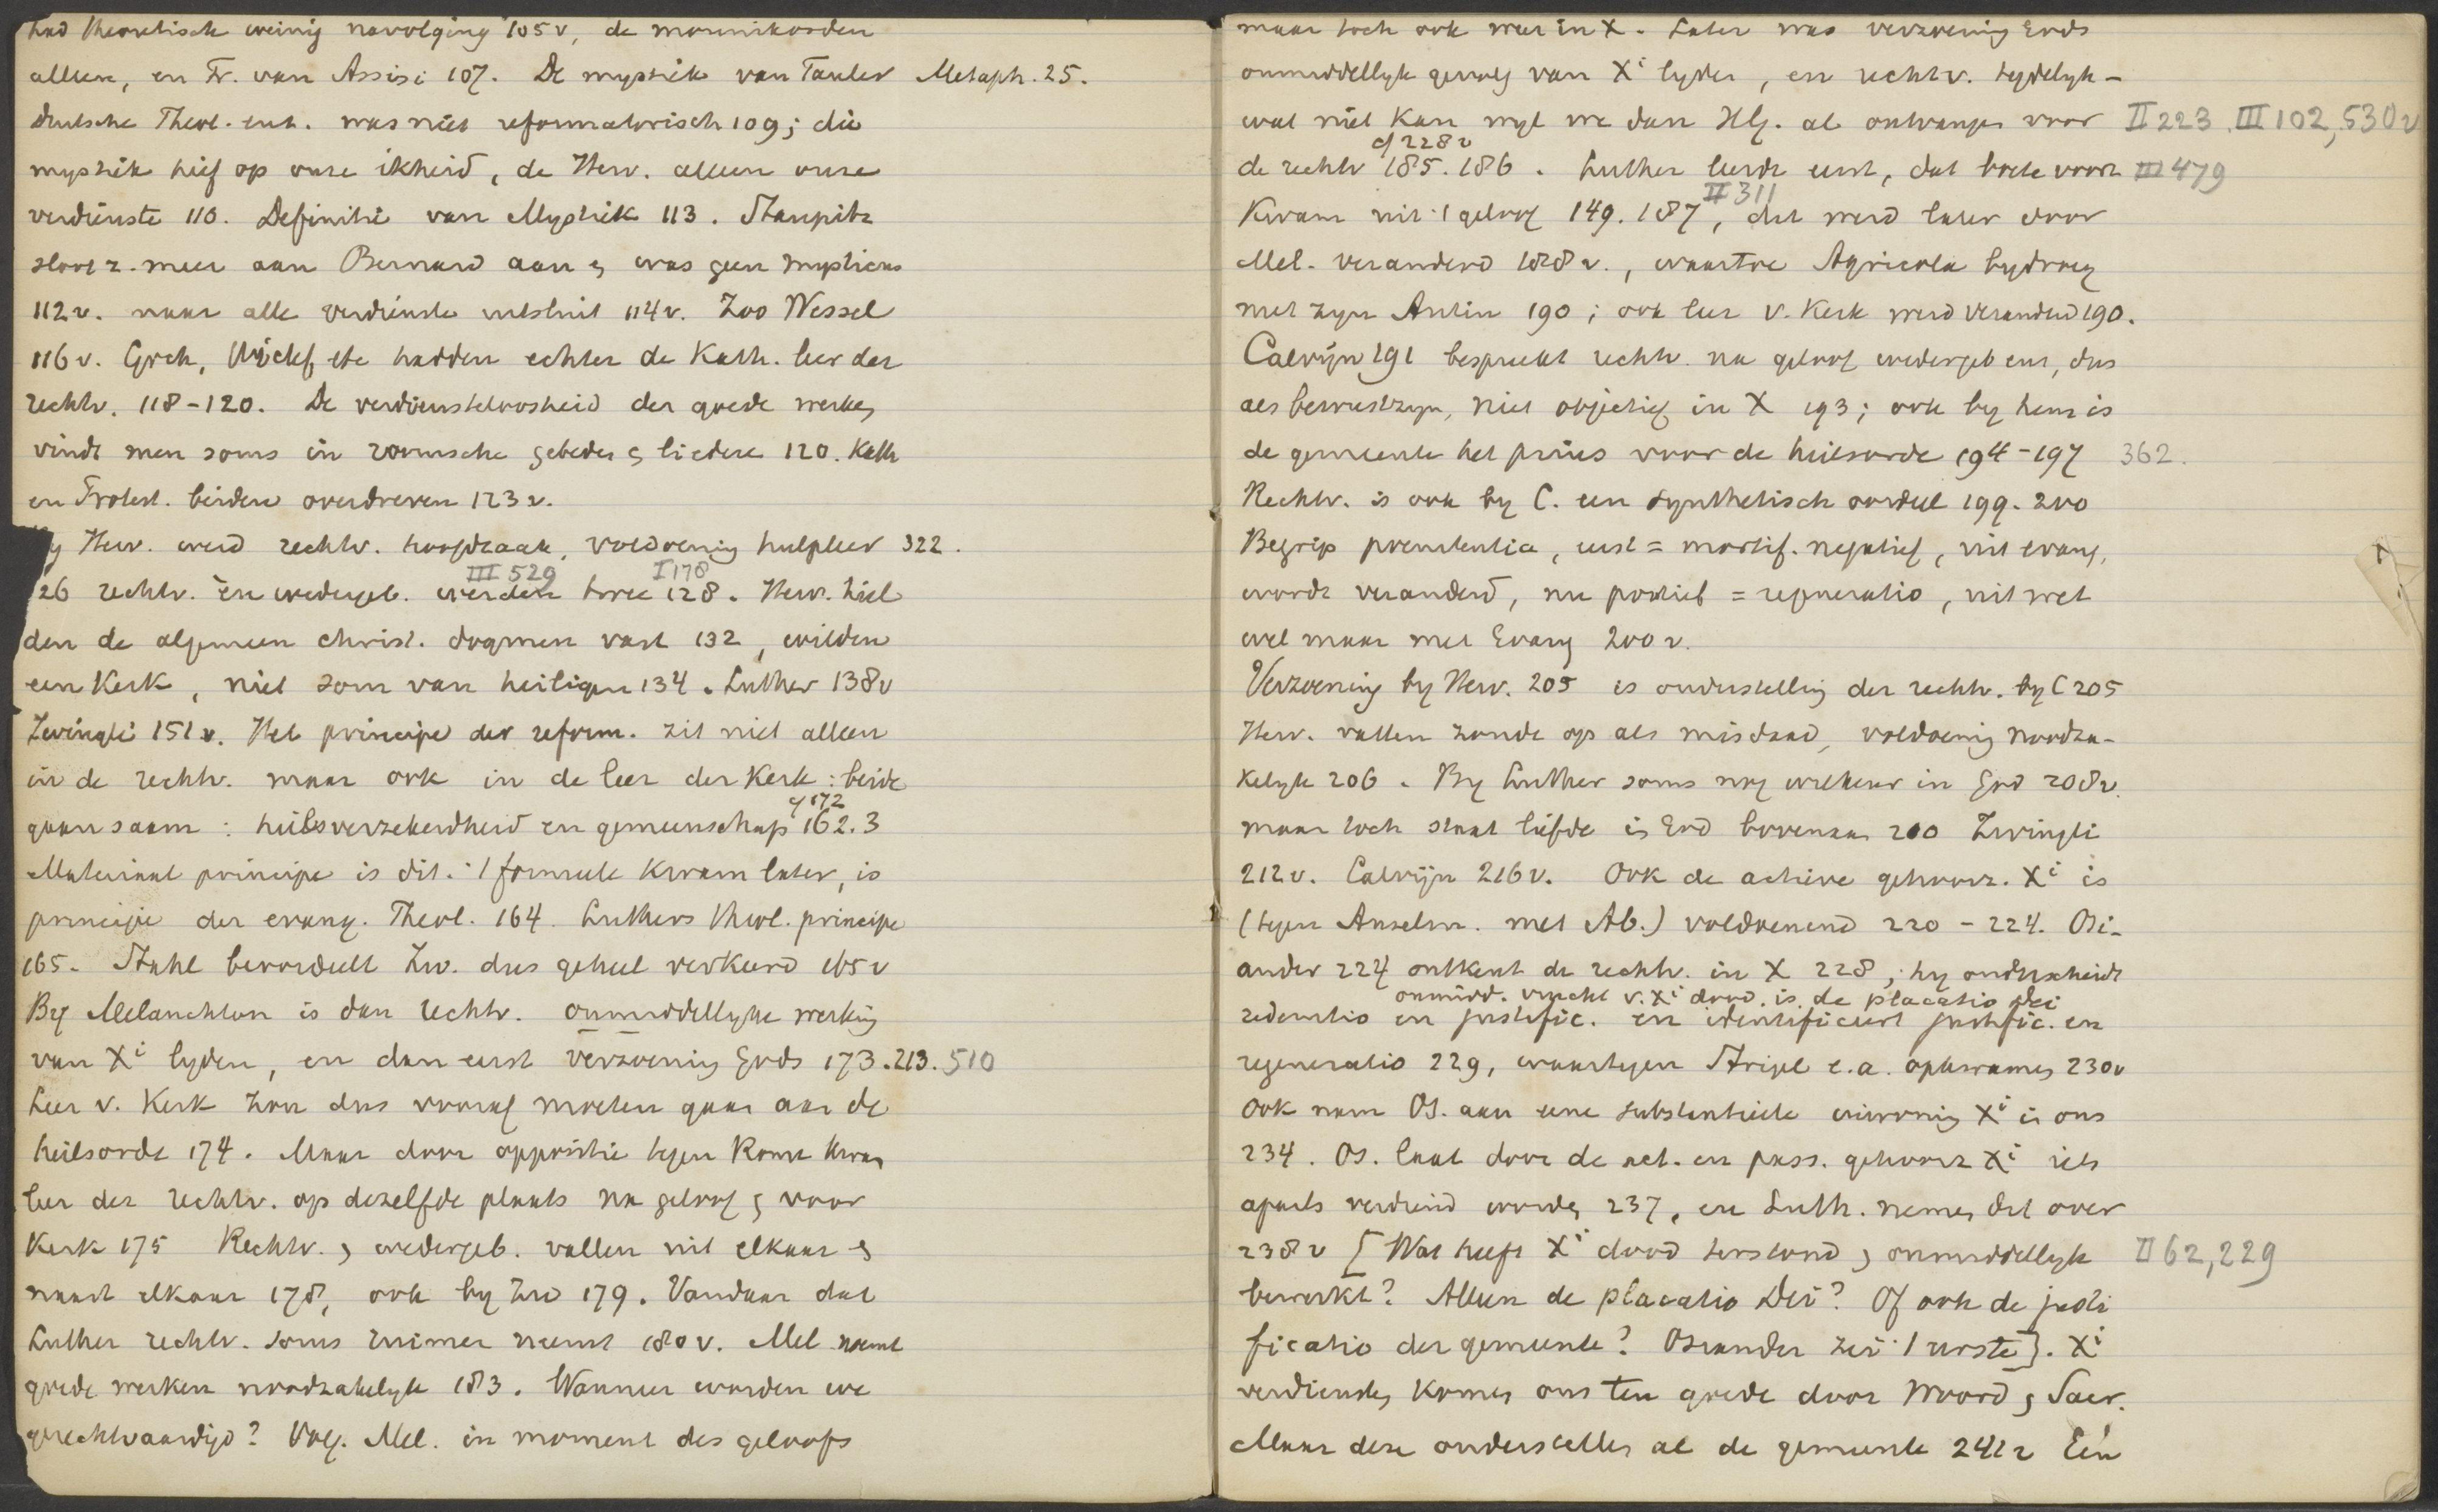 had theoretisch weinig navolging 105v, de monnikorden
alleen, en Fr. van Assisi 107. De mystiek van Tauler Metaph. 25.
Deutsche Theol. enz. was niet reformatorisch 109; die
mystiek hief op onze ikheid, de Herv. alleen onze
verdienste 110. Definitie van Mystiek 113. Staupitz
sloot z. meer aan Bernard aan en was geen mysticus
112v. maar alle verdienste uitsluit 114v. Zoo Wessel
116v. Goch, Wiclef, etc hadden echter de Kath. leer der
rechtv. 118-120. De verdiensteloosheid der goede werken
vindt men soms in roomsche gebeden en liederen 120. Kath
en Protest. beiden overdreven 123v.
By Herv. werd rechtv. hoofdzaak, voldoening hulpleer 322.
III 529 I 178
126 rechtv. en wedergeb. werden twee 128. Herv. hiel
den de algemeen christ. dogmen vast 132, wilden
een Kerk, niet som van heiligen 134. Luther 138v
Zwingli 151v. Het principe der reform. zit niet alleen
in de rechtv. maar ook in de leer der Kerk: beide
cf 172
gaan saam: heilsverzekerdheid en gemeenschap 162.3
Materiaal principe is dit. 't formeele kwam later, is
principe der evang. Theol. 164. Luthers theol. principe
165. Stahl beoordeelt Zw. dus geheel verkeerd 165v
By Melanchton is dan rechtv. onmiddellyke werking
van Xi lyden, en dan eerst verzoening Gods 173.213.510
Leer v. Kerk zou dus vooraf moeten gaan aan de
heilsorde 174. Maar door oppositie tegen Rome kwam
leer der rechtv. op dezelfde plaats na geloof en voor
Kerk 175 Rechtv. en wedergeb. vallen uit elkaar en
naast elkaar 178, ook by Zw 179. Vandaar dat
Luther rechtv. soms ruimer neemt 180v. Mel. noemt
goede werken noodzakelyk 183. Wanneer worden we
gerechtvaardigd? Volg. Mel. in moment des geloofs
maar toch ook weer in X. Later was verzoening Gods
onmiddellyk gevolg van Xi lyden, en rechtv. tydelyk-
wat niet kan wyl we dan H.G. al ontvangen voor II 223. III 102, 530v
cf 228v
de rechtv 185.186. Luther leerde eerst, dat boete voort III 479
II 311
kwam uit 't geloof 149.187, dat werd later door
Mel. veranderd 188v., waartoe Agricola bydroeg
met zyn Antin 190; ook leer v. Kerk werd veranderd 190.
Calvijn 191 bespreekt rechtv. na geloof wedergeb enz, dus
als bewustzyn, niet objectief in X 193; ook by hem is
de gemeente het prius voor de heilsorde 194-197 362.
Rechtv. is ook by C. een synthetisch oordeel 199.200
Begrip poenitentia, eerst = mortif. negatief, uit evang,
wordt veranderd, nu positief = regeneratio, uit wet
wel maar met Evang 200v.
Verzoening by Herv. 205 is onderstelling der rechtv. by C 205
Herv. vatten zonde op als misdaad, voldoening noodza-
kelyk 206. By Luther soms nog willekeur in God 208v.
maar toch staat liefde in God bovenaan 210 Zwingli
212v. Calvijn 216v. Ook de actieve gehoorz. Xi is
(tegen Anselm. met Ab.) voldoenend 220-224. Osi-
ander 224 ontkent de rechtv. in X 228, hy onderscheidt
onmidd. vrucht v. Xi dood. is de placatio Dei
redemtio en justific. en identificeert justific. en
regeneratio 229, waartegen Strigel e.a. opkwamen 230v
Ook nam Os. aan eene substantieele inwoning Xi in ons
234. Os. laat door de act. en pass. gehoorz Xi iets
aparts verdiend worden 237, en Luth. nemen dat over
238v [Wat heeft Xi dood terstond en onmiddellyk II 62, 229
bewerkt? Alleen de placatio Dei? Of ook de justi
ficatio der gemeente? Osiander zei 't eerste]. Xi
verdiensten komen ons ten goede door Woord en Sacr.
Maar deze onderstellen al de gemeente 242v Een